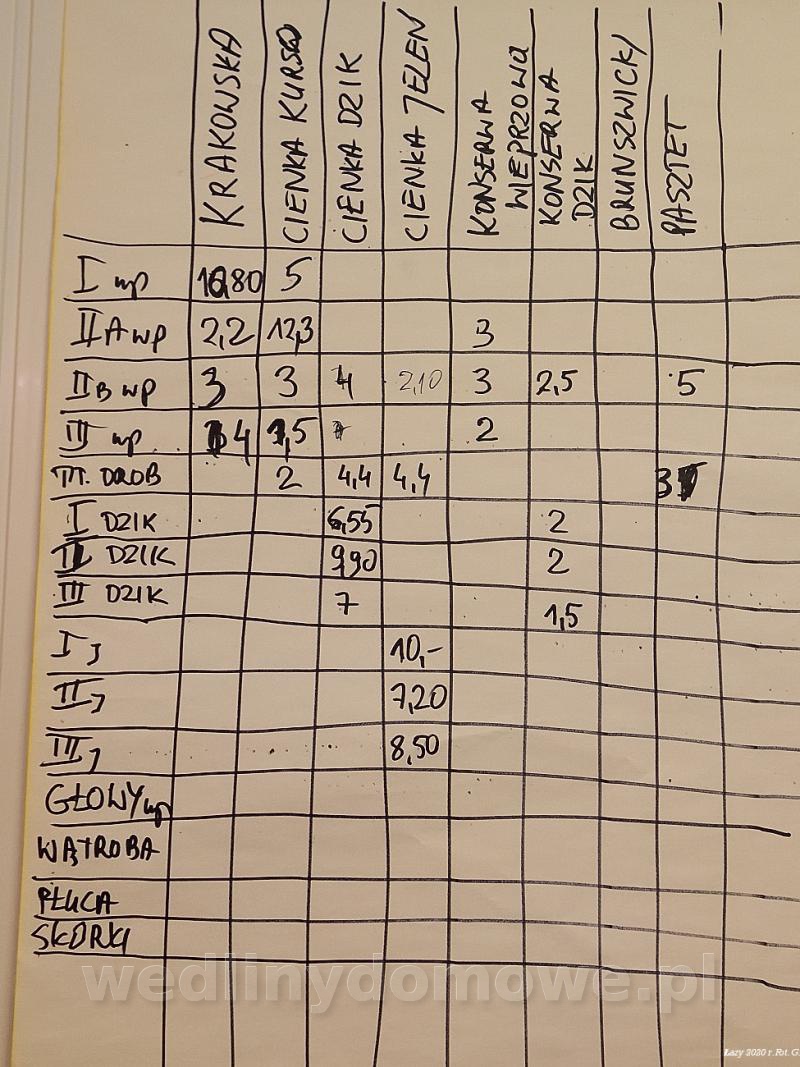 KRAKOWSKA CIENKA KURSO CIENKA DZIK CIENKA JELEŃ KONSERWA WIEPRZOWA KONSERWA DZIK BRUNSZWICK/ PASZTET
I wp 10,80 5
II A wp 2,2 12,3 3
II B wp 3 3 4 2,10 3 2,5 5
III wp 4 1,5 2
TŁ. DROB 2 4,4 4,4 3
I DZIK 6,55 2
II DZIK 9,90 2
III DZIK 7 1,5
I J 10,-
II J 7,20
III J 8,50
GŁOWY wp
WĄTROBA
PŁUCA
SKÓRKI
wedlinydomowe.pl
Łazy 2020 r. Fot. G.